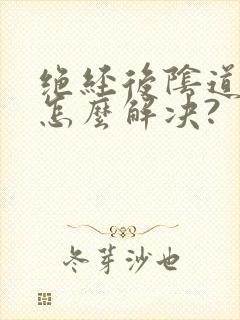 絶経後陰道
怎麼解決?
冬芽沙也